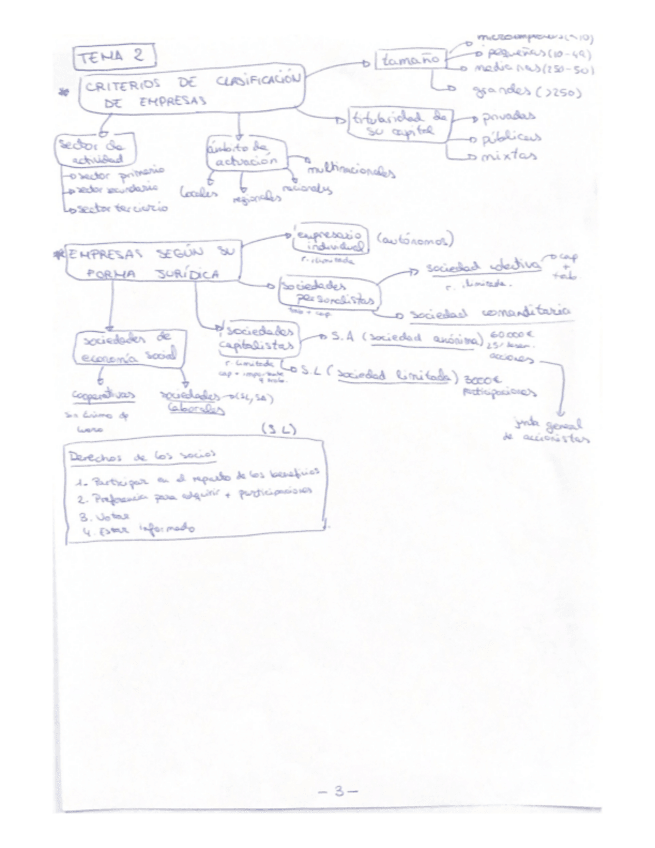 TEMA 2
* CRITERIOS DE CLASIFICACIÓN
DE EMPRESAS
tamaño
microempresas (<10)
pequeñas (10-49)
medianas (250-50)
grandes (>250)
titularidad de
su capital
privadas
públicas
mixtas
sector de
actividad
sector primario
sector secundario
sector terciario
ámbito de
actuación
locales
regionales
nacionales
multinacionales
* EMPRESAS SEGÚN SU
FORMA JURÍDICA
empresario
individual
(autónomos)
r. ilimitada
sociedades
personalistas
trab + cap.
sociedad colectiva
r. ilimitada.
cap
+
trab
sociedad comanditaria
sociedades de
economía social
cooperativas
sin ánimo de
lucro
sociedades
laborales
(SL, SA)
sociedades
capitalistas
r. limitada
cap + importante
q trab.
S.A (sociedad anónima)
60000€
acciones
junta general
de accionistas
S.L (sociedad limitada)
3000€
participaciones
(SL)
Derechos de los socios
1. Participar en el reparto de los beneficios
2. Preferencia para adquirir + participaciones
3. Votar
4. Estar informado
- 3 -